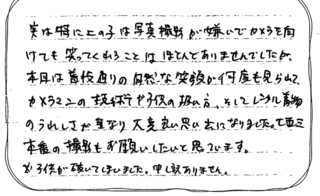 実は特に上の子は写真撮影が嫌いでカメラを向
けても笑ってくれることはほとんどありませんでしたが、
本日は普段通りの自然な笑顔が何度も見られて、
カメラマンの技術や子供の扱い方、そしてレンタル着物
のうれしさが重なり大変良い思い出になりました。七五三
本番の撮影もお願いしたいと思っています。
※子供が破いてしまいました。申し訳ありません。